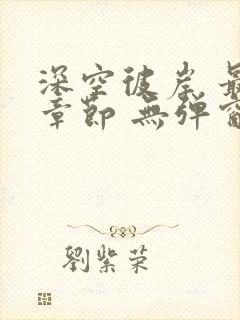 深空彼岸 最
章節 無彈窗
劉紫荣